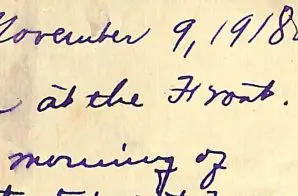 November 9, 1918
at the Front.
morning of